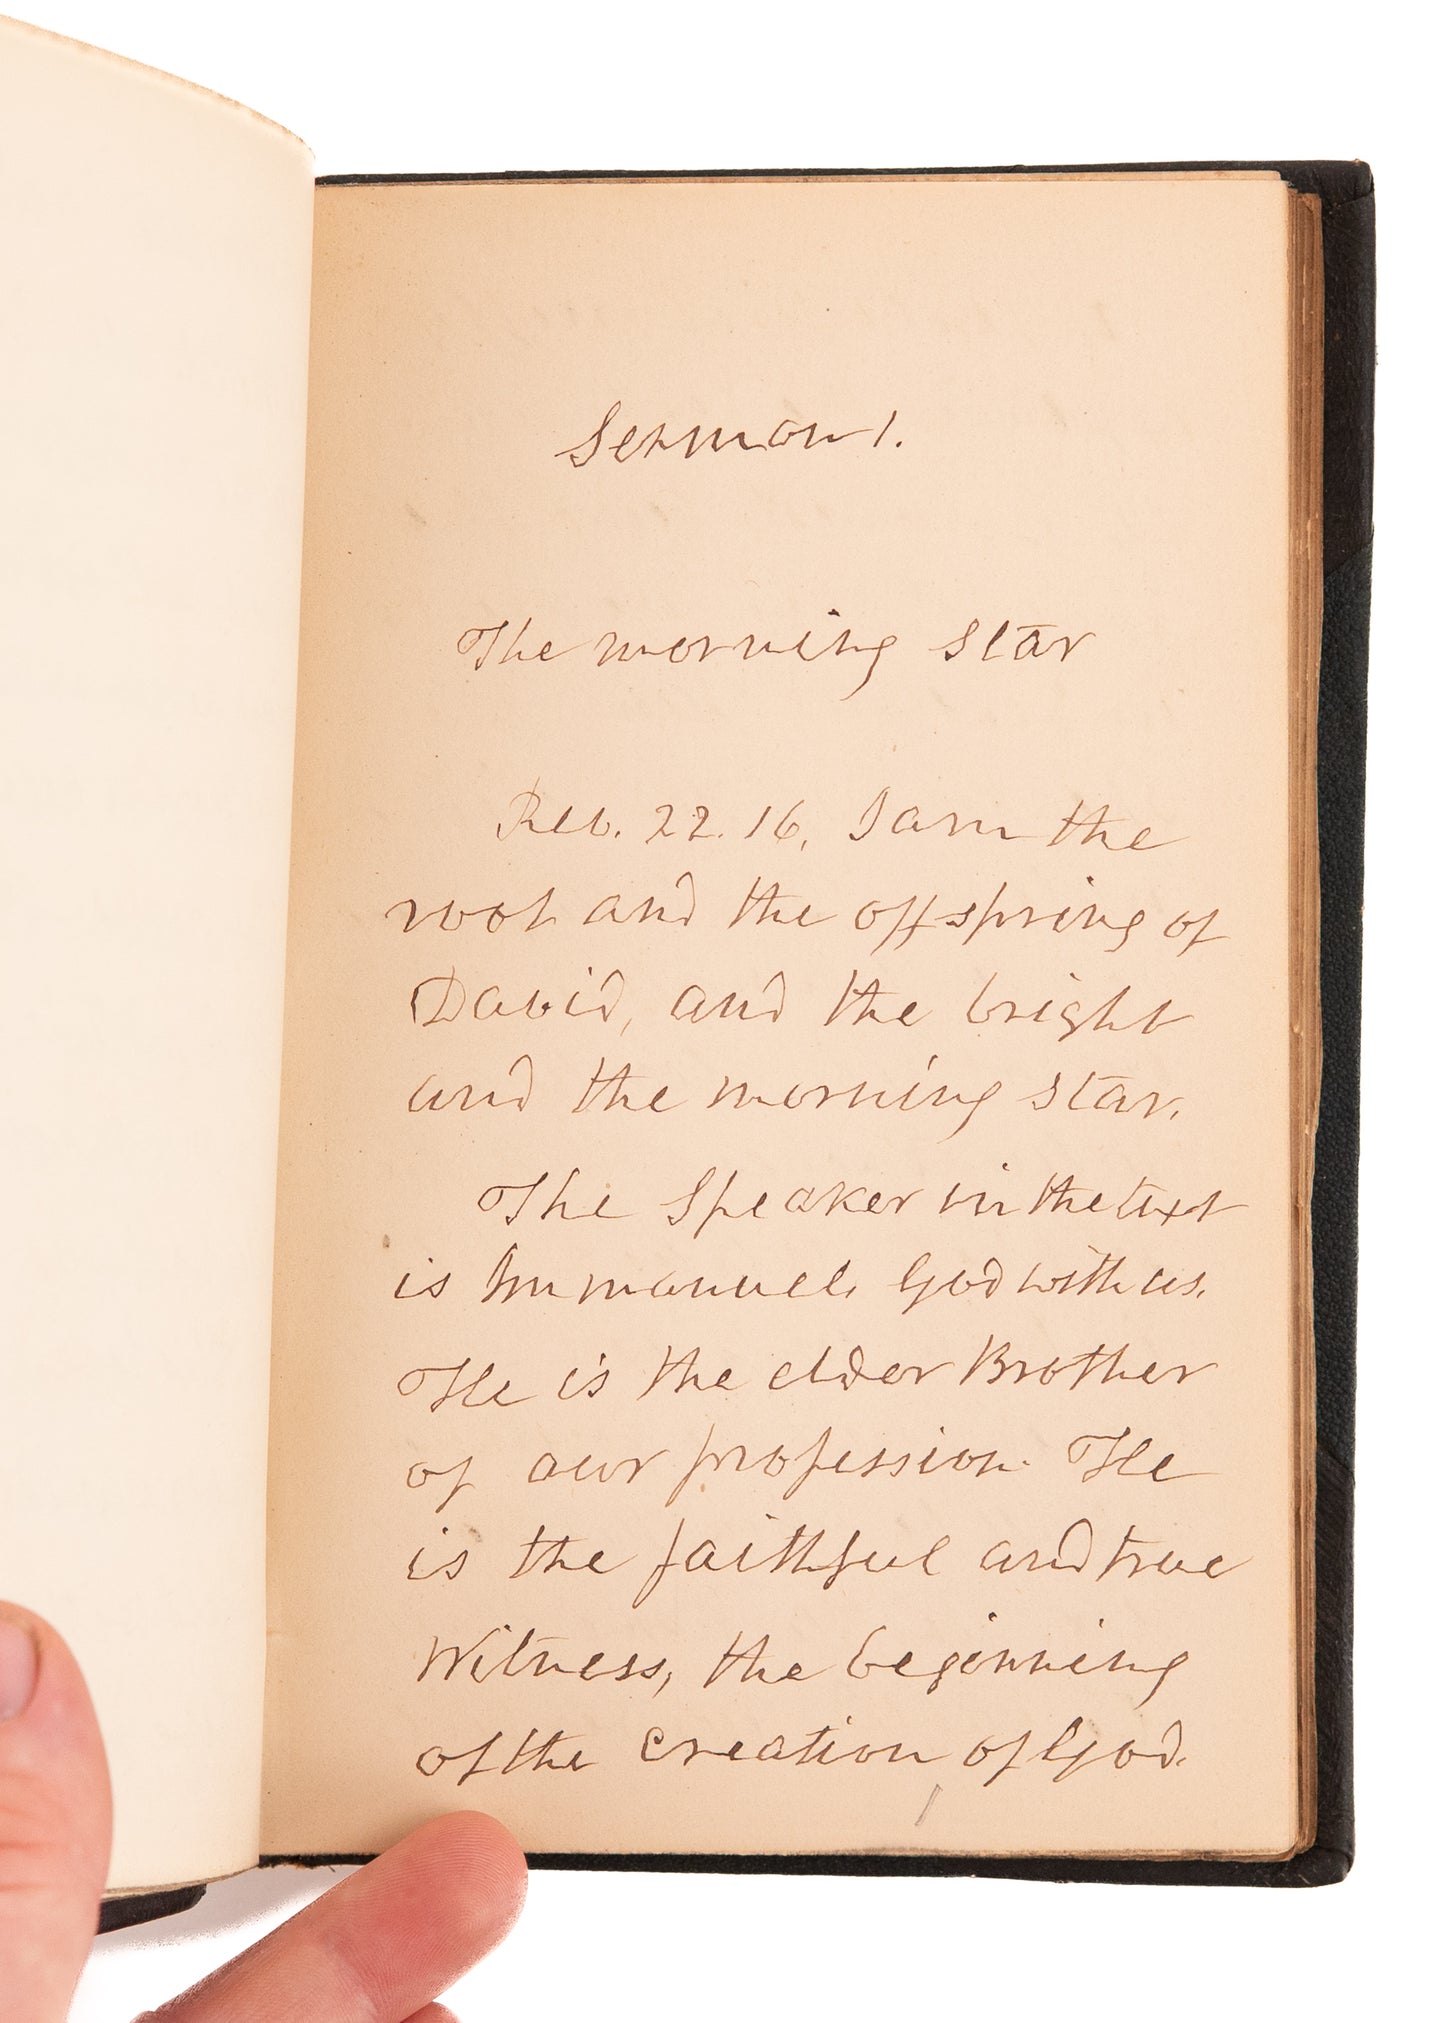 Sermon 1.
The morning Star
Rev. 22. 16, I am the
root and the offspring of
David, and the bright
and the morning star.
The Speaker in the text
is Immanuel, God with us.
He is the elder Brother
of our profession. He
is the faithful and true
Witness, the beginning
of the Creation of God.
1